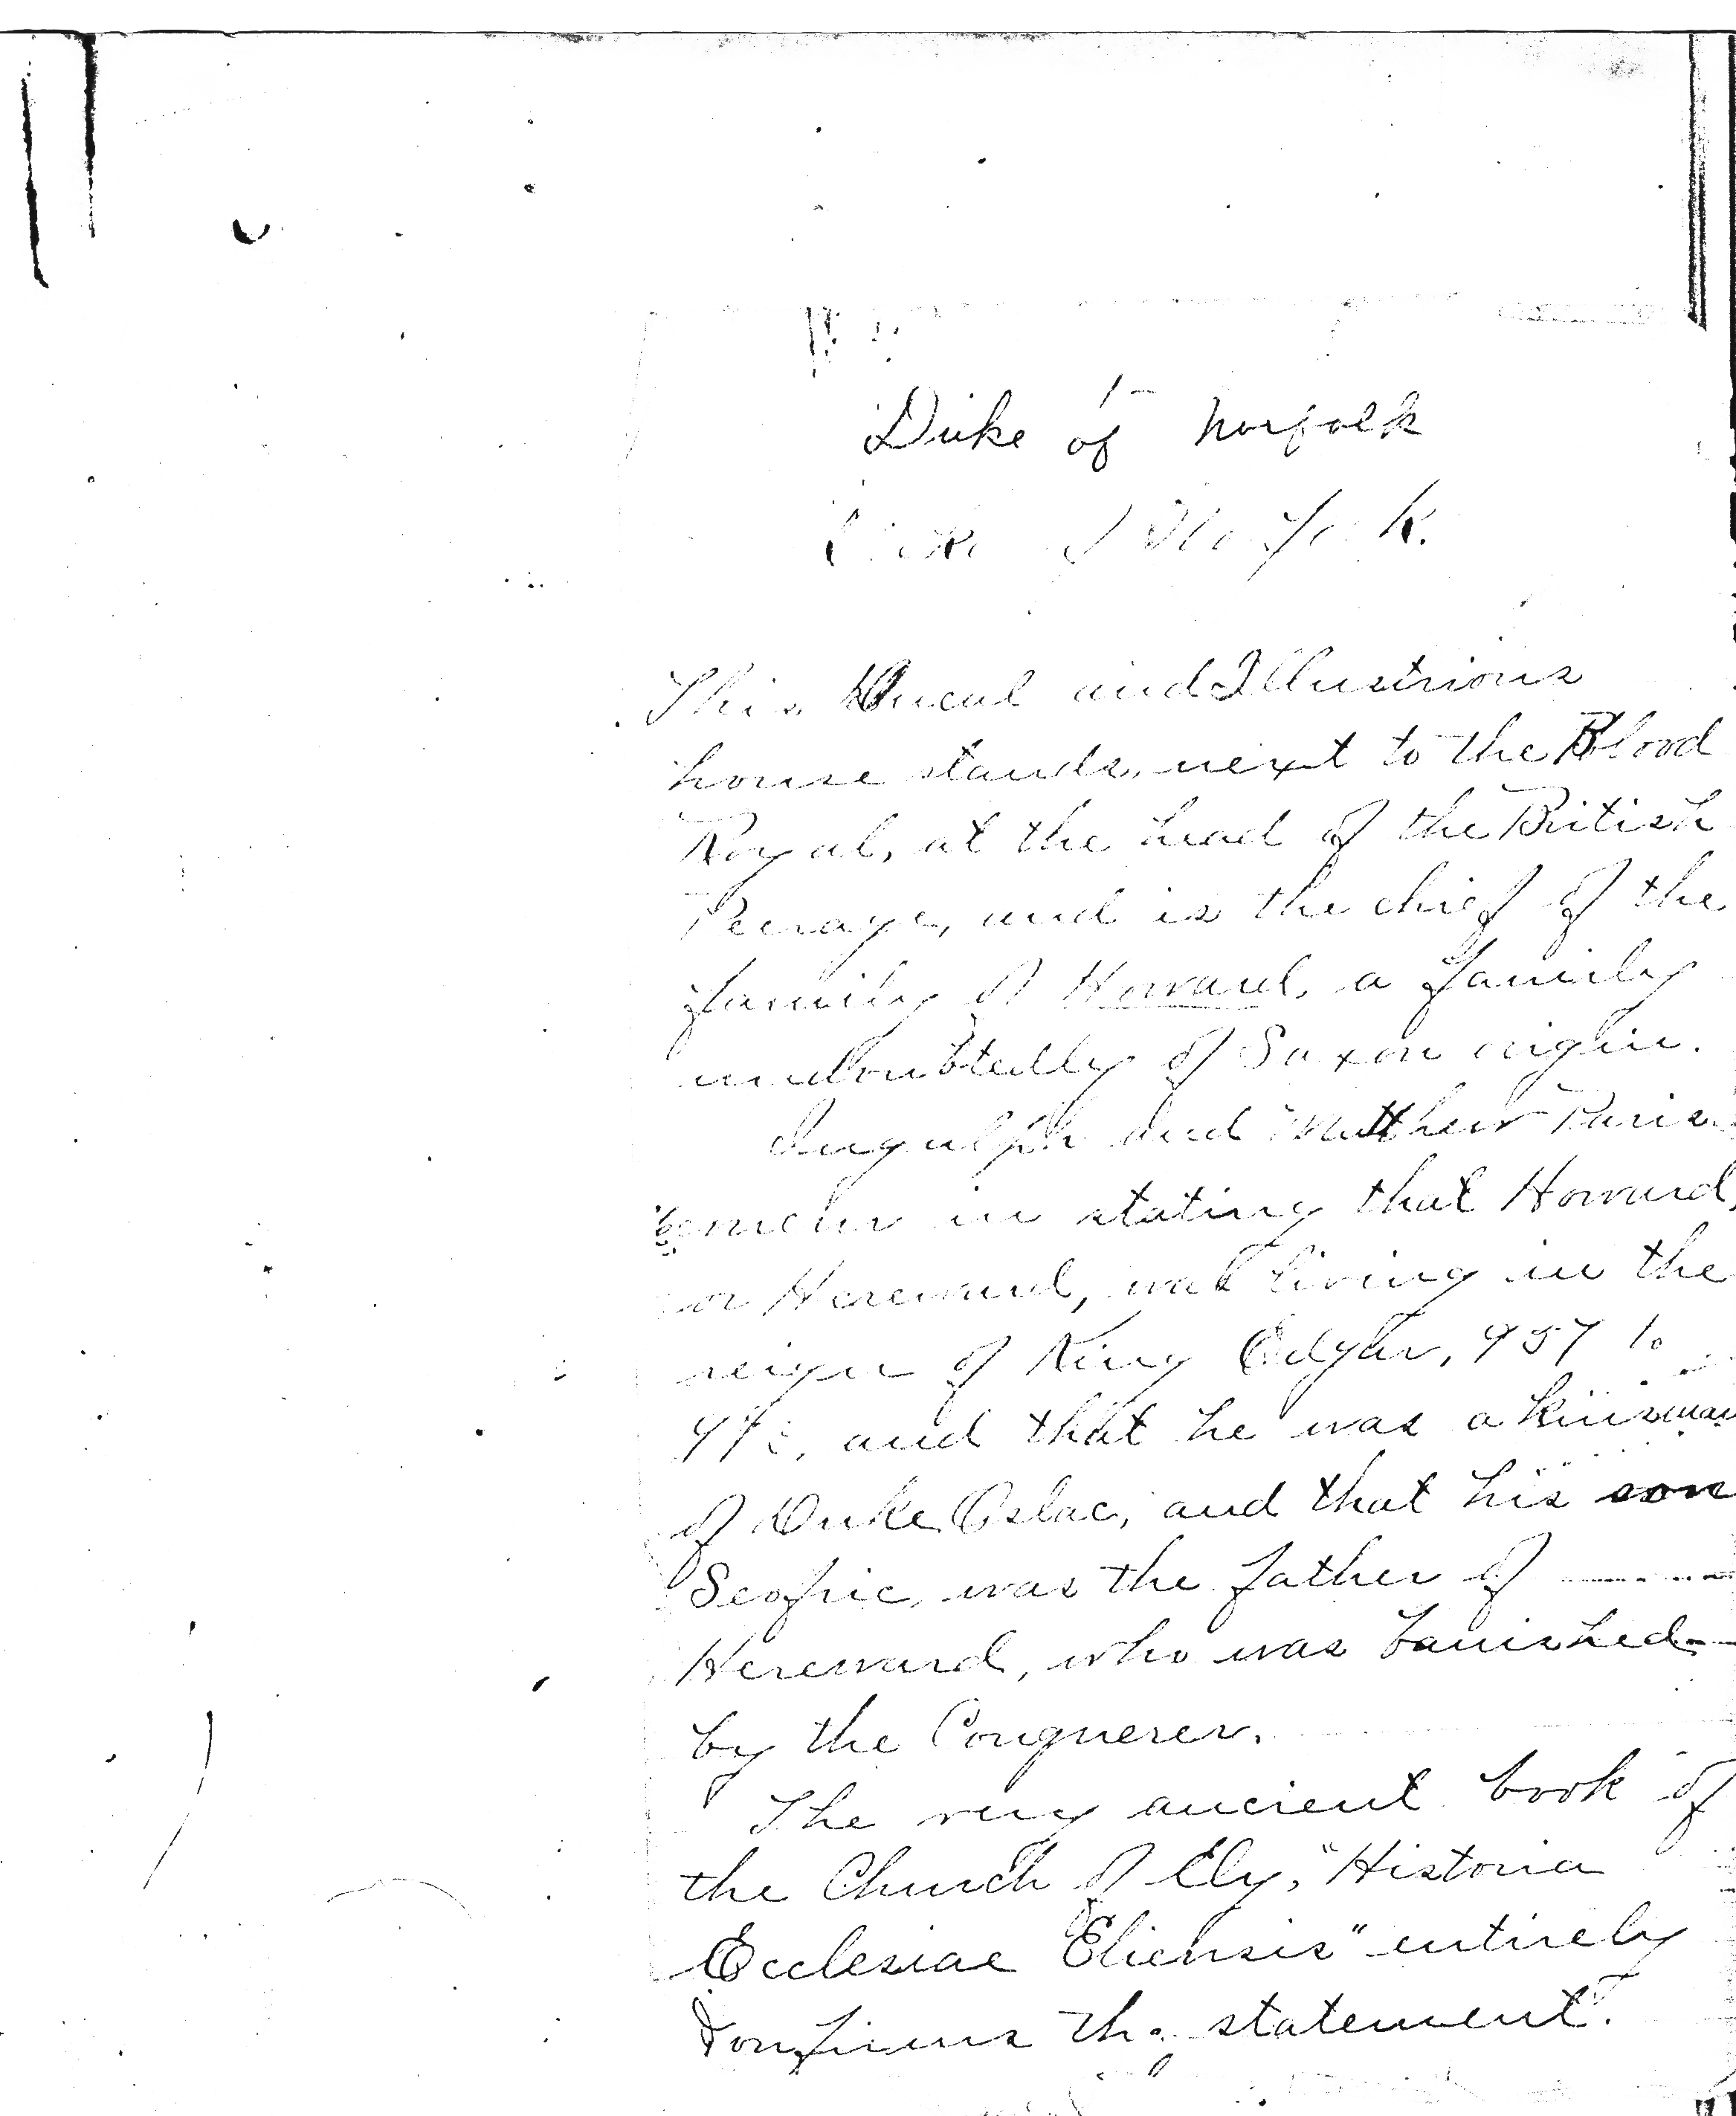 Duke of Norfolk
This Ducal and Illustrious
house stands, next to the Blood
Royal, at the head of the British
Peerage, and is the chief of the
family of Howard, a family
undoubtedly of Saxon origin.
Ingulph and Matthew Paris
concur in stating that Howard,
or Hereward, was living in the
reign of King Edgar, 957 to
and that he was a kinsman
of Duke Oslac, and that his son
Seofric, was the father of
Hereward, who was banished
by the Conquerer.
The very ancient book of
the Church of Ely, "Historia
Ecclesiae Eliensis" entirely
confirms the statement.